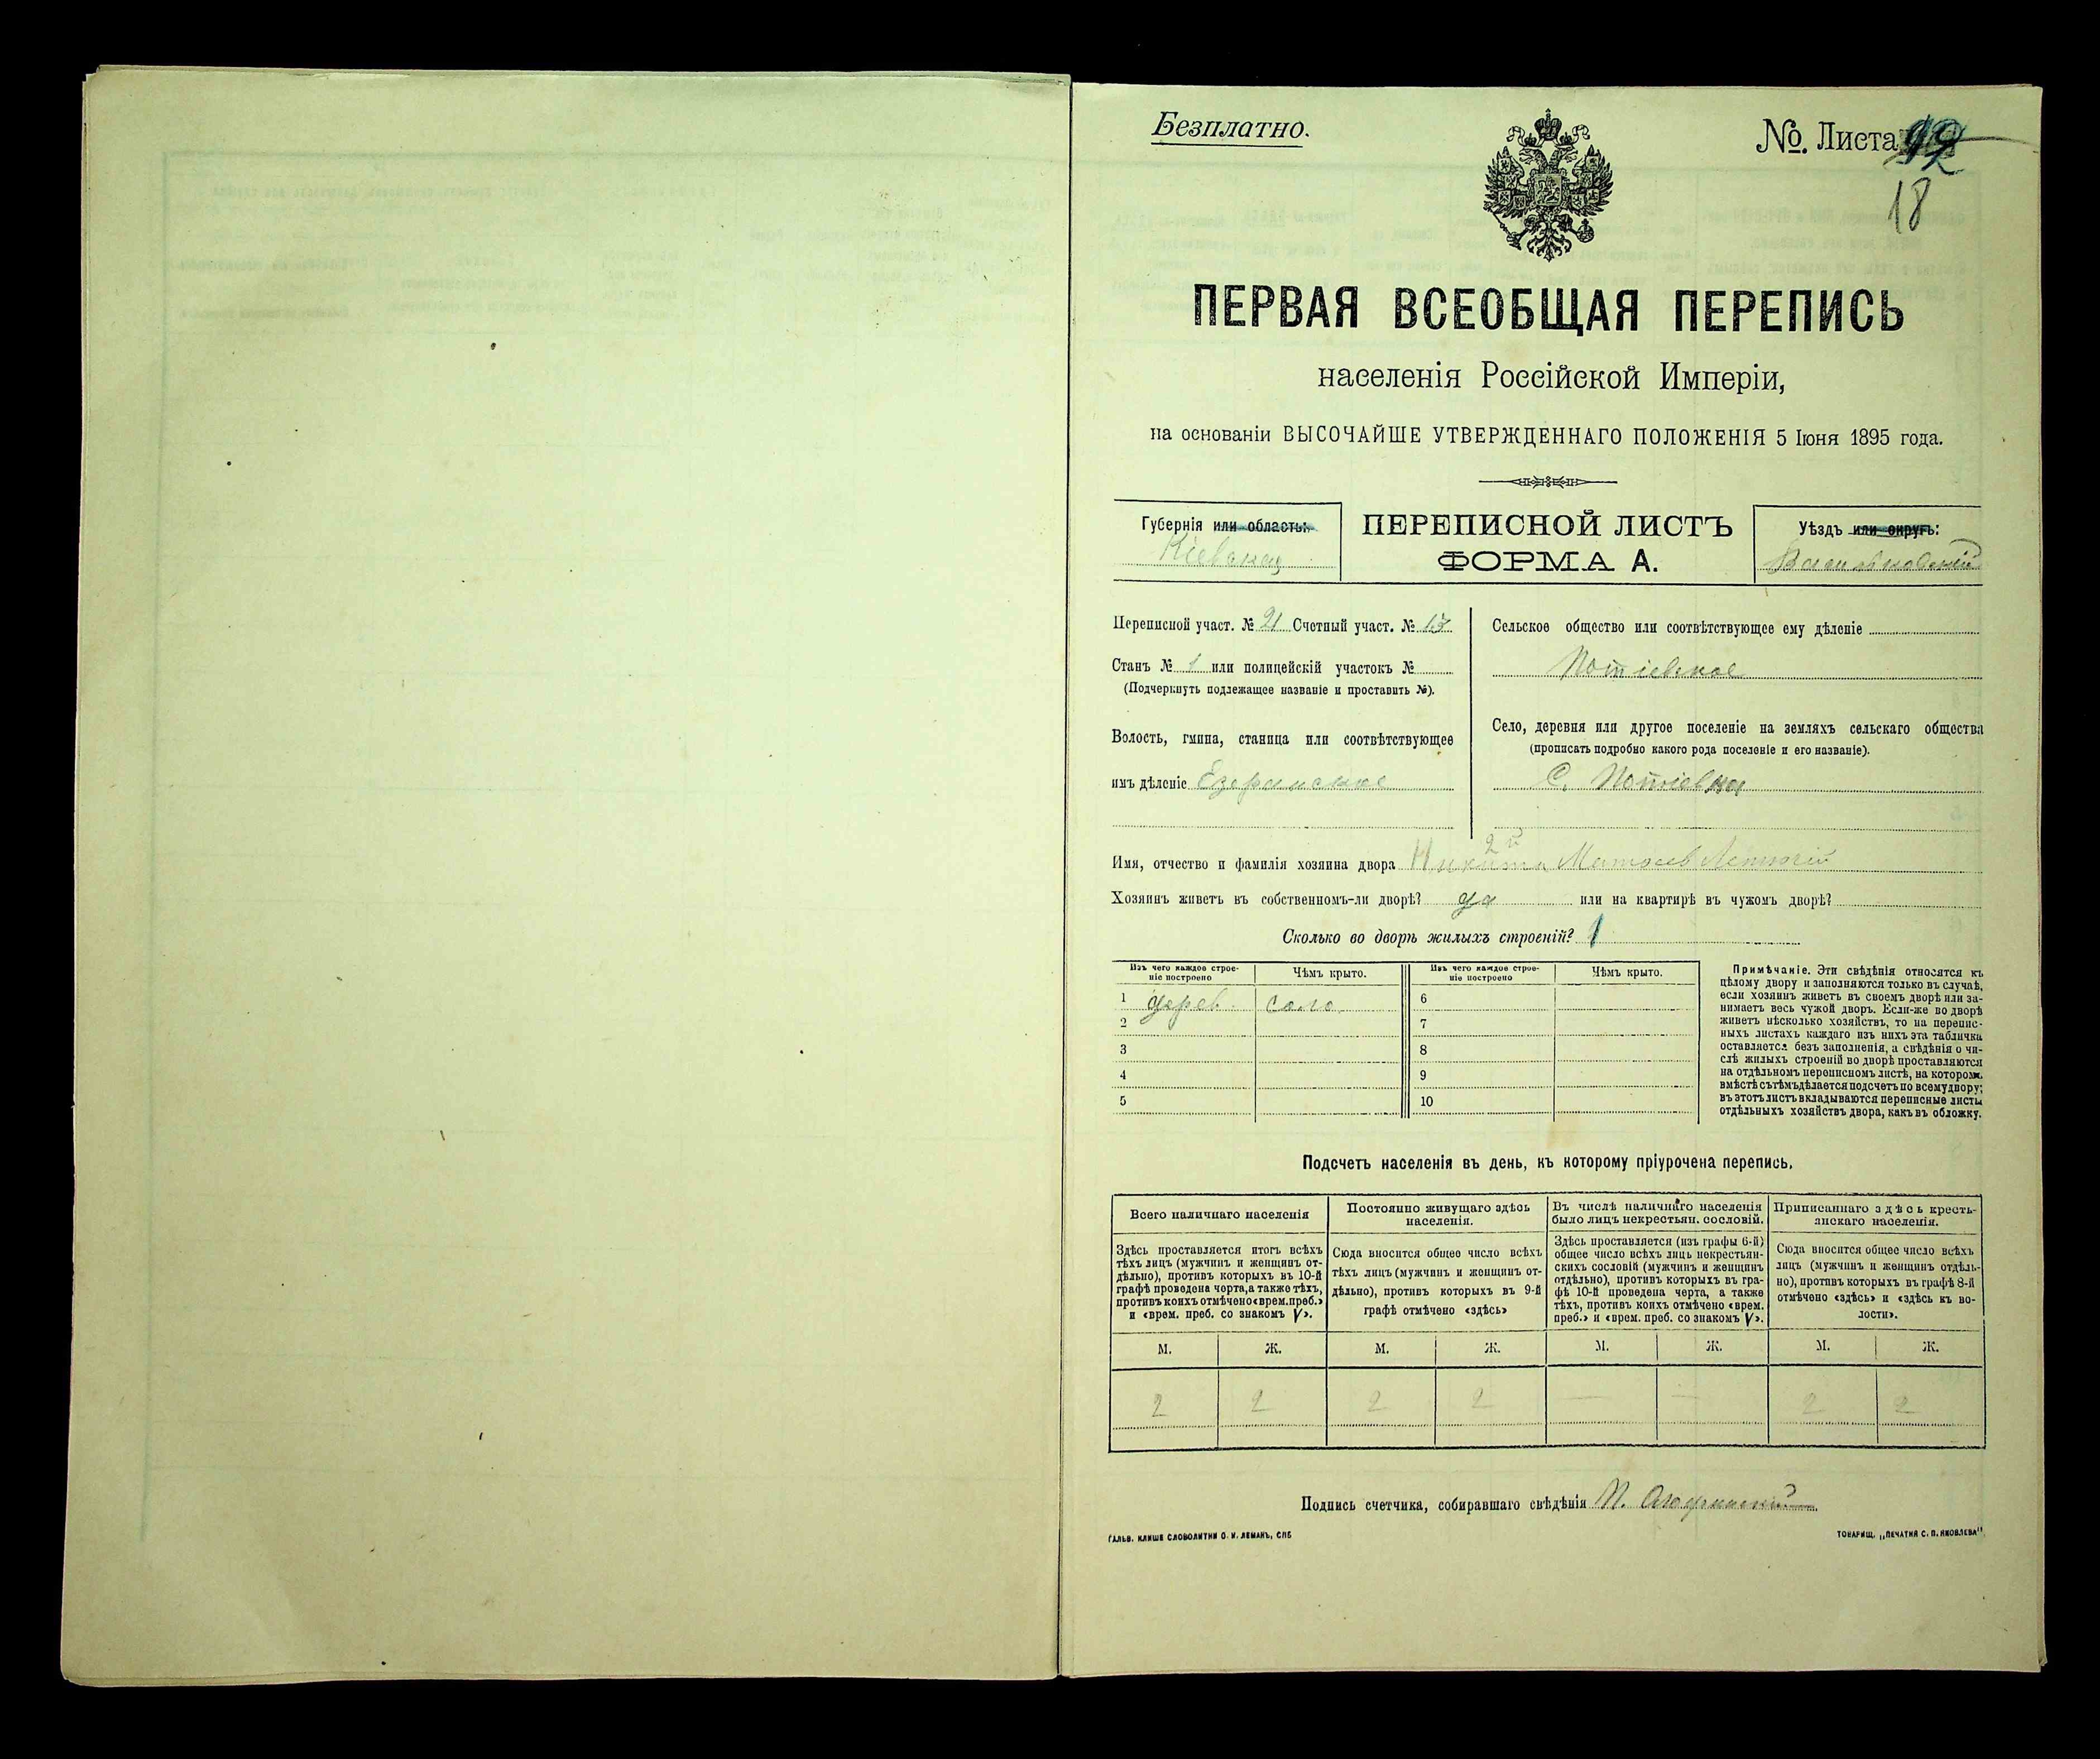 Безплатно.
№. Листа
18
ПЕРВАЯ ВСЕОБЩАЯ ПЕРЕПИСЬ
населенія Россійской Имперіи,
на основаніи ВЫСОЧАЙШЕ УТВЕРЖДЕННАГО ПОЛОЖЕНІЯ 5 Іюня 1895 года.
Губернія или область:
Кіевская
ПЕРЕПИСНОЙ ЛИСТЪ
ФОРМА А.
Уѣздъ или округъ:
Васильковскій
Переписной участ. № 21 Счетный участ. № 13
Станъ № 1 или полицейскій участокъ №
(Подчеркнуть подлежащее названіе и проставить №).
Волость, гмина, станица или соотвѣтствующее
имъ дѣленіе Езерянское
Сельское общество или соотвѣтствующее ему дѣленіе
Потіевское
Село, деревня или другое поселеніе на земляхъ сельскаго общества
(прописать подробно какого рода поселеніе и его названіе).
С. Потіевка
Имя, отчество и фамилія хозяина двора Никита 2й Матѳеев
Хозяинъ живетъ въ собственномъ-ли дворѣ? да или на квартирѣ въ чужомъ дворѣ?
Сколько во дворѣ жилыхъ строеній? 1
Изъ чего каждое строе-
ніе построено
Чѣмъ крыто.
Изъ чего каждое строе-
ніе построено
Чѣмъ крыто.
1 дерев. соло 6
2 7
3 8
4 9
5 10
Примѣчаніе. Эти свѣдѣнія относятся къ
цѣлому двору и заполняются только въ случаѣ,
если хозяинъ живетъ въ своемъ дворѣ или за-
нимаетъ весь чужой дворъ. Если-же во дворѣ
живетъ нѣсколько хозяйствъ, то на перепис-
ныхъ листахъ каждаго изъ нихъ эта табличка
оставляется безъ заполненія, а свѣдѣнія о чи-
слѣ жилыхъ строеній во дворѣ проставляются
на отдѣльномъ переписномъ листѣ, на которомъ
вмѣстѣ съ тѣмъ дѣлается подсчетъ по всему двору;
въ этотъ листъ вкладываются переписные листы
отдѣльныхъ хозяйствъ двора, какъ въ обложку.
Подсчетъ населенія въ день, къ которому пріурочена перепись.
Всего наличнаго населенія
Постоянно живущаго здѣсь
населенія.
Въ числѣ наличнаго населенія
было лицъ некрестьян. сословій.
Приписаннаго здѣсь кресть-
янскаго населенія.
Здѣсь проставляется итогъ всѣхъ
тѣхъ лицъ (мужчинъ и женщинъ от-
дѣльно), противъ которыхъ въ 10-й
графѣ проведена черта, а также тѣхъ,
противъ коихъ отмѣчено «врем. преб.»
и «врем. преб. со знакомъ V».
Сюда вносится общее число всѣхъ
тѣхъ лицъ (мужчинъ и женщинъ от-
дѣльно), противъ которыхъ въ 9-й
графѣ отмѣчено «здѣсь»
Здѣсь проставляется (изъ графы 6-й)
общее число всѣхъ лицъ некрестьян-
скихъ сословій (мужчинъ и женщинъ
отдѣльно), противъ которыхъ въ гра-
фѣ 10-й проведена черта, а также
тѣхъ, противъ коихъ отмѣчено «врем.
преб.» и «врем. преб. со знакомъ V».
Сюда вносится общее число всѣхъ
лицъ (мужчинъ и женщинъ отдѣль-
но), противъ которыхъ въ графѣ 8-й
отмѣчено «здѣсь» и «здѣсь къ во-
лости».
М. Ж. М. Ж. М. Ж. М. Ж.
2 2 2 2 — — 2 2
Подпись счетчика, собиравшаго свѣдѣнія П.
ГАЛЬВ. КЛИШЕ СЛОВОЛИТНИ О. И. ЛЕМАНЪ, СПБ
ТОВАРИЩ. „ПЕЧАТНЯ С. П. ЯКОВЛЕВА"